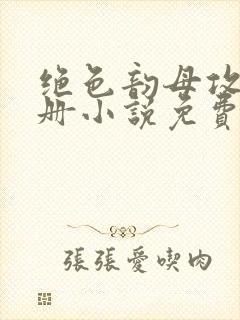 绝色韵母攻
册小说免費
張張愛喫肉